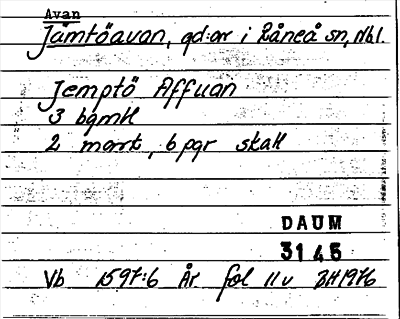 Avan
Jämtöavan, gd:ar i Råneå sn, Nbl.
Jemptö Affuan
3 bgmtl
2 mark, 6 pgr skatt
DAUM
3145
Vb 1597:6 År fol 11v BH1976